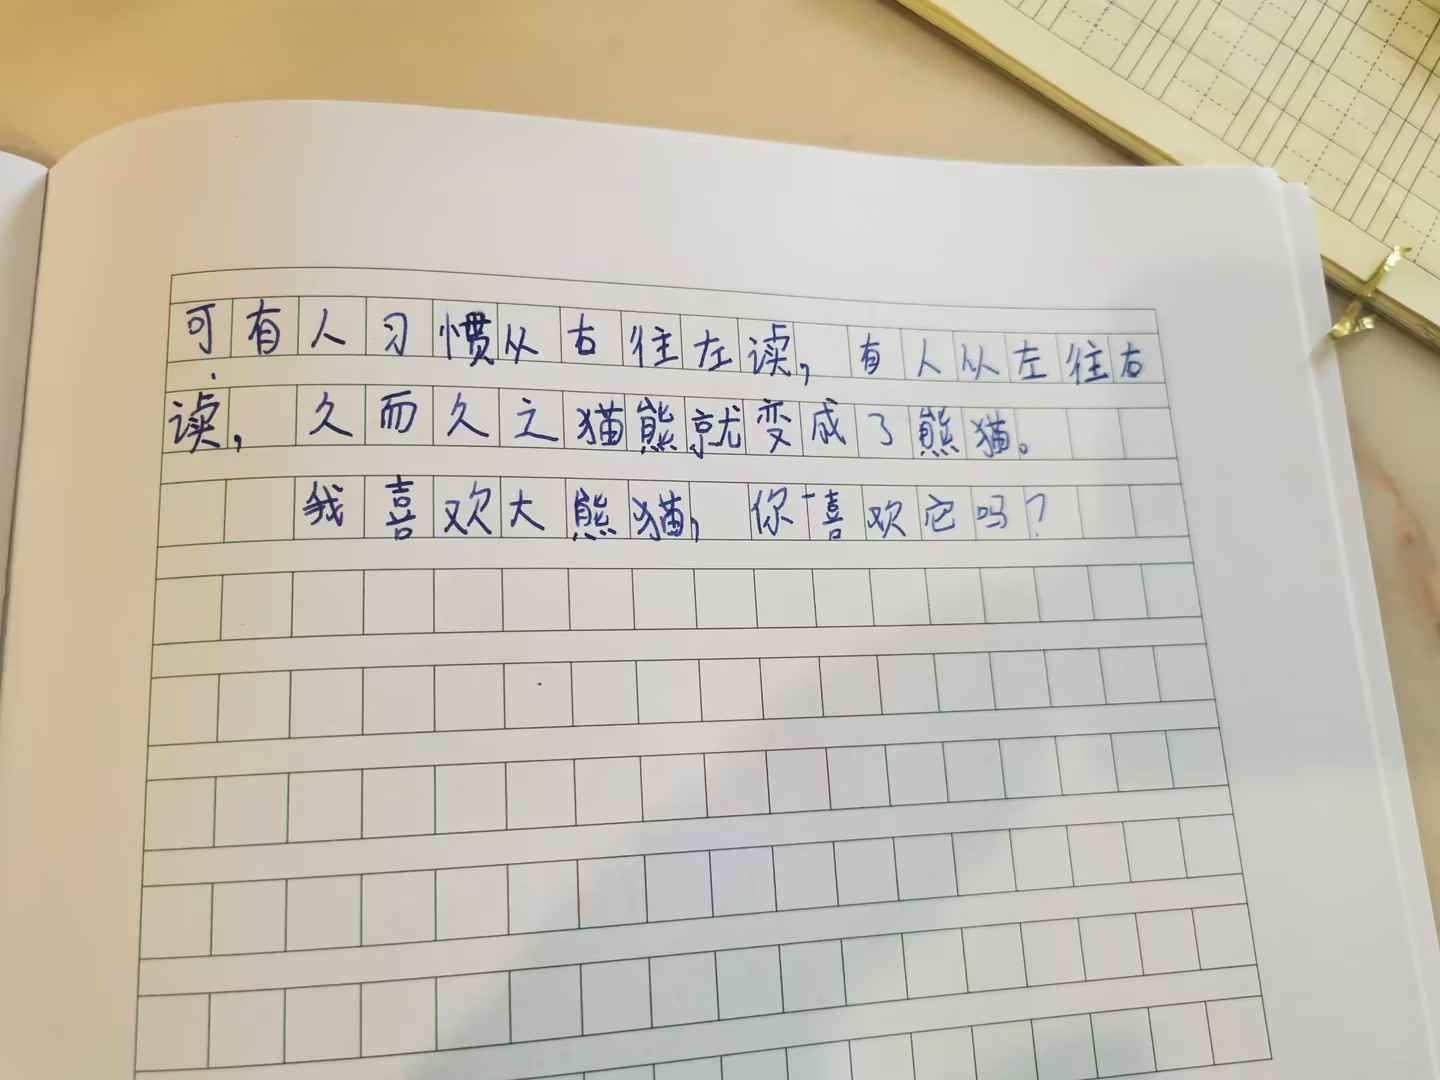 可有人习惯从右往左读，有人从左往右
读，久而久之猫熊就变成了熊猫。
我喜欢大熊猫，你喜欢它吗？